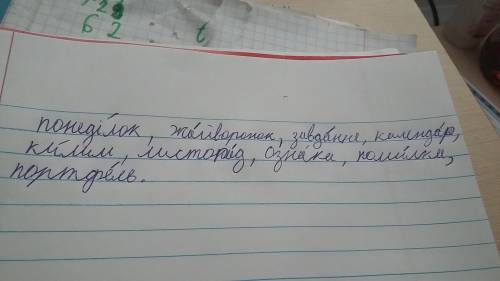 28
62
t
понеді́лок, жа́йворонок, завда́ння, календа́р,
ки́лим, листопа́д, озна́ка, поми́лка,
портфе́ль.